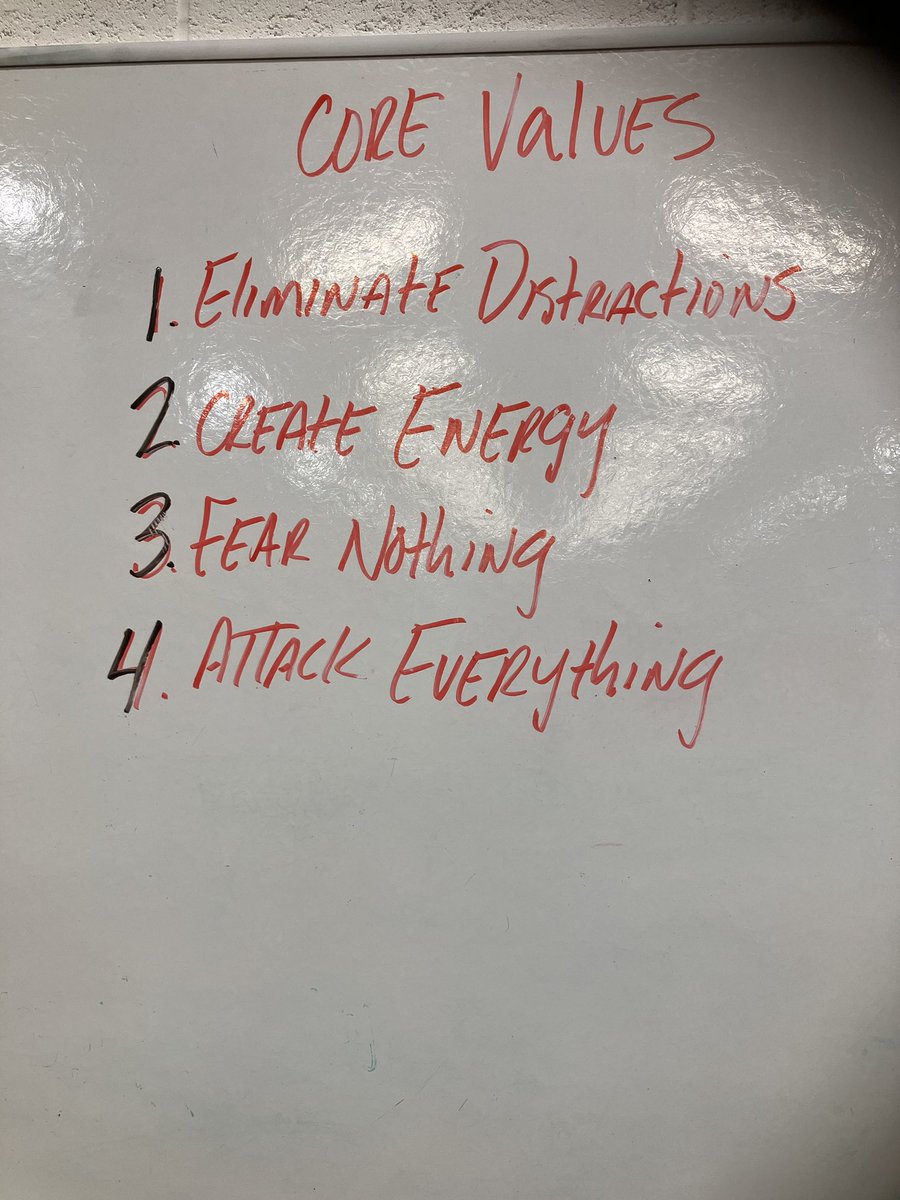 CORE VALUES
1. ELIMINATE DISTRACTIONS
2. CREATE ENERGY
3. FEAR NOTHING
4. ATTACK EVERYTHING